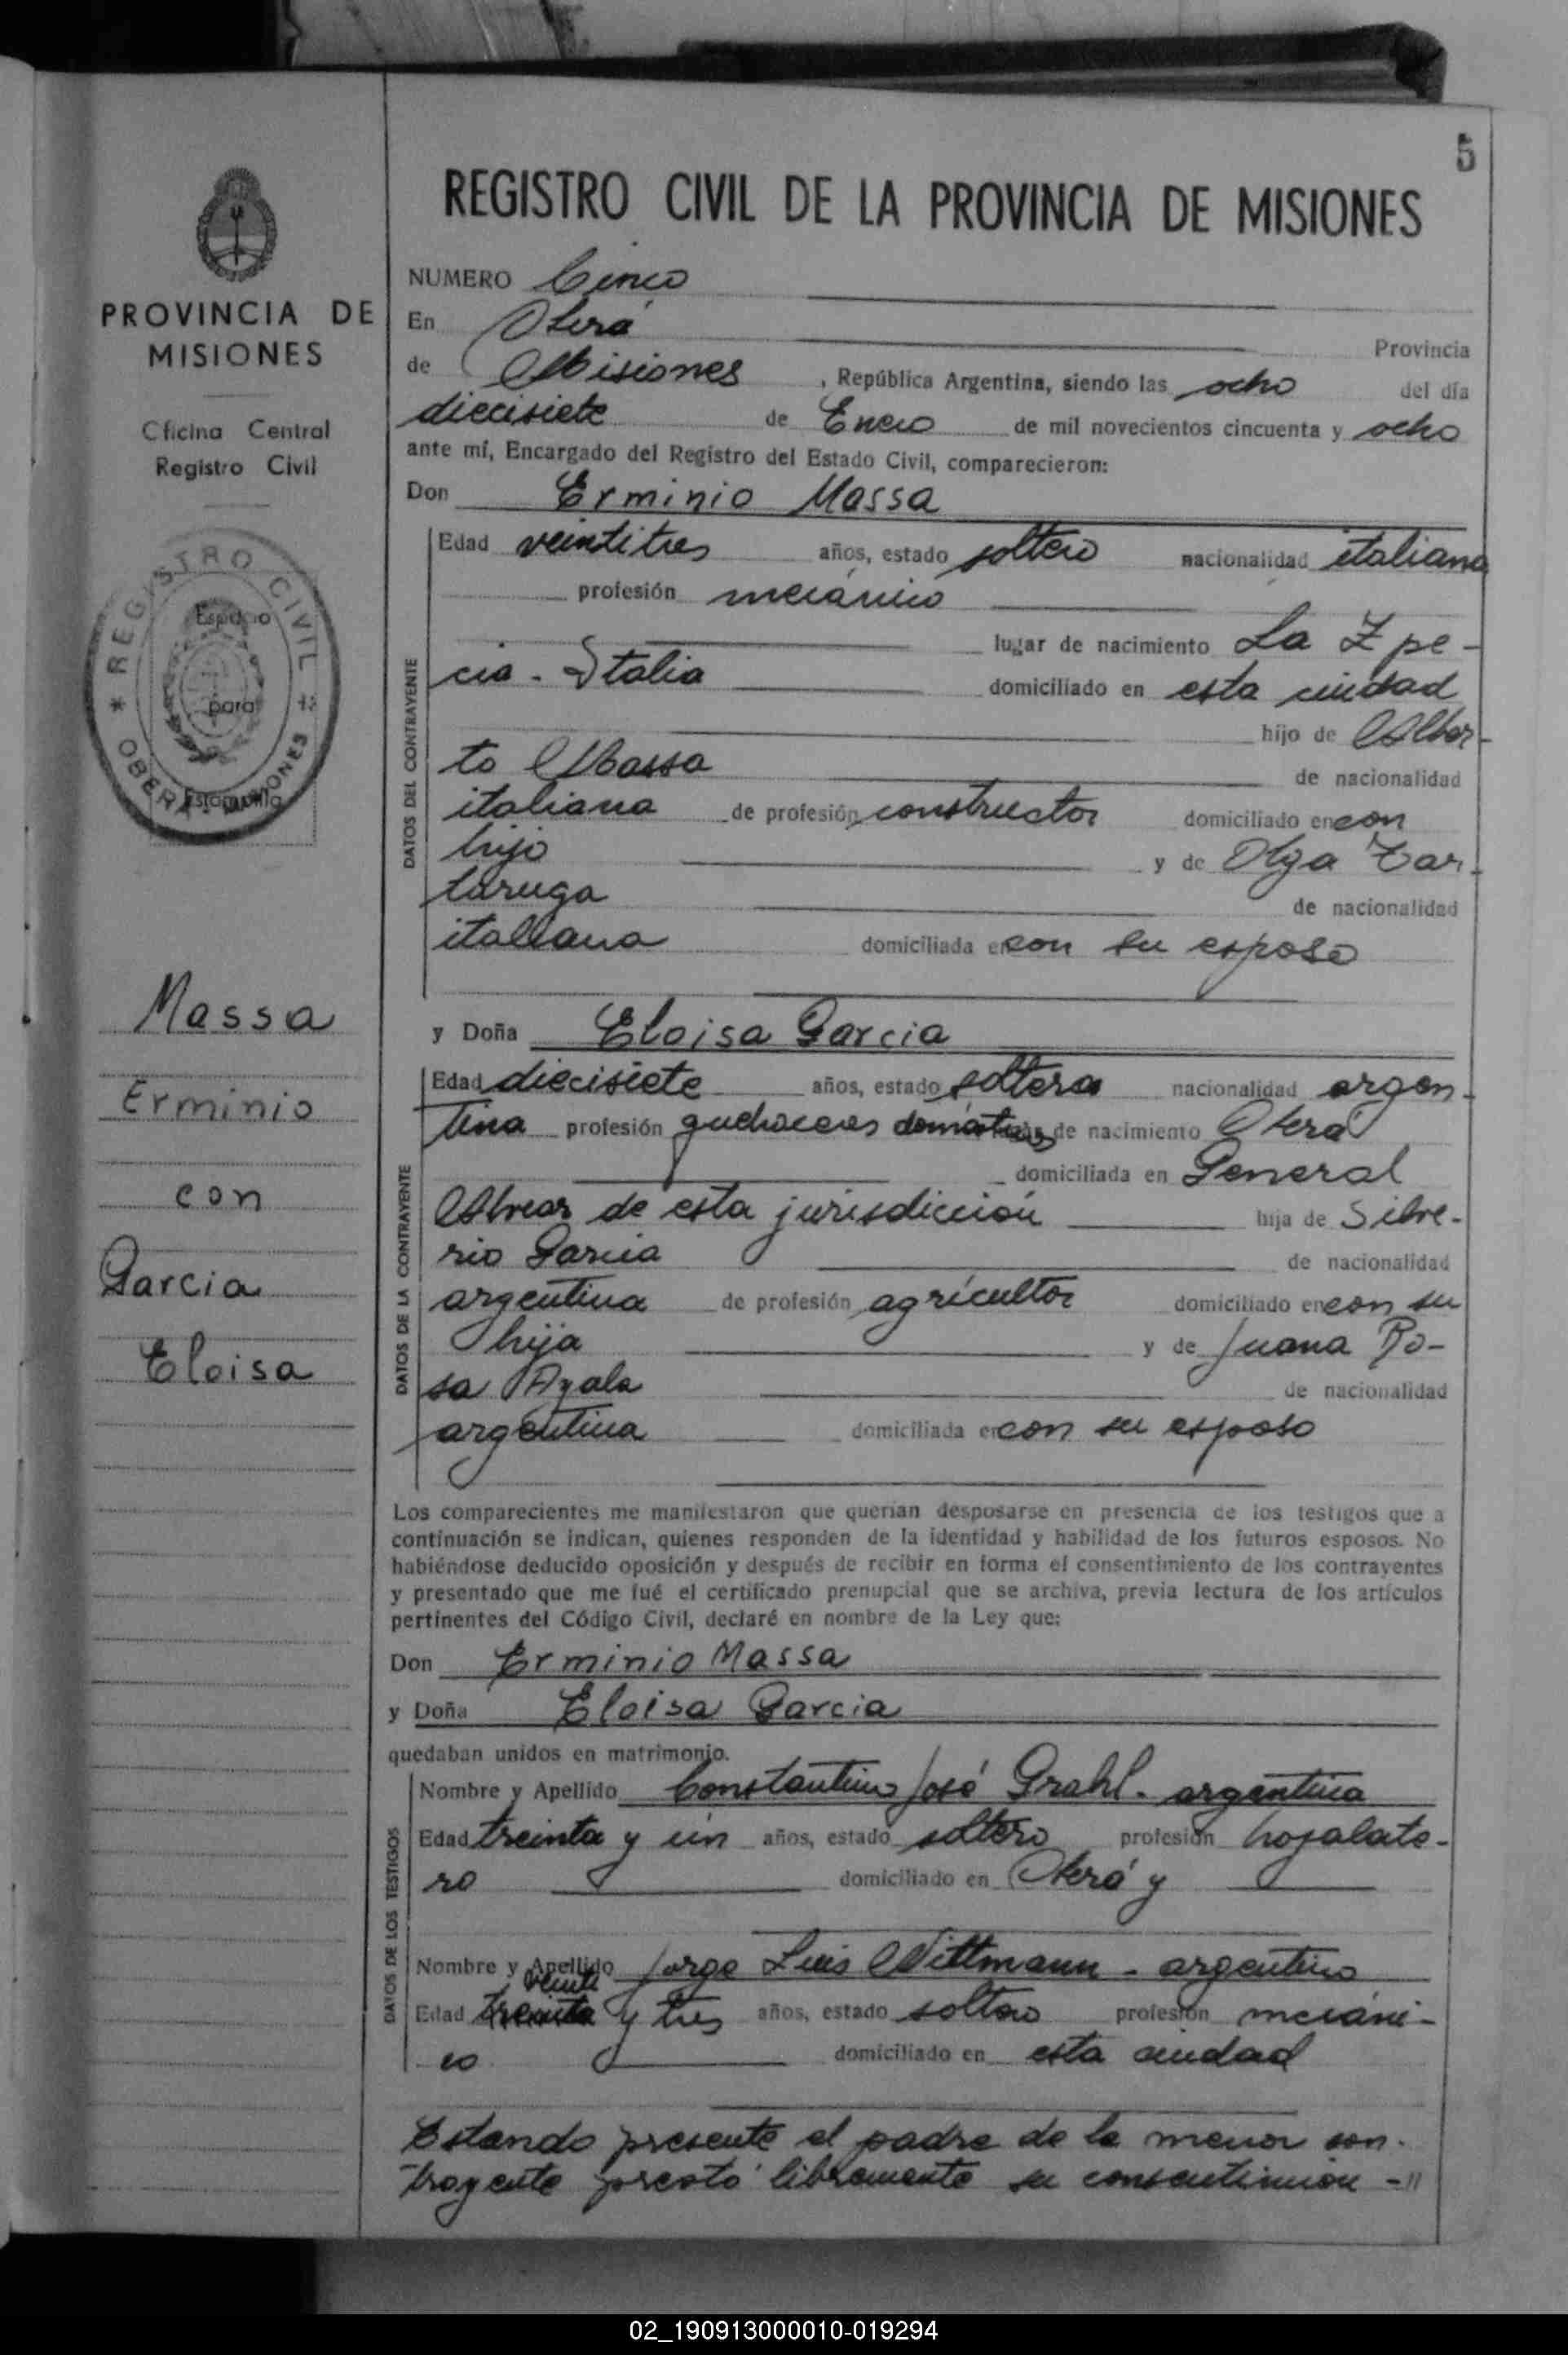 5
REGISTRO CIVIL DE LA PROVINCIA DE MISIONES
PROVINCIA DE
MISIONES
Oficina Central
Registro Civil
REGISTRO CIVIL
Espacio
para
Estampilla
OBERA - MISIONES
Massa
Erminio
con
Garcia
Eloisa
NUMERO Cinco
En Oberá Provincia
de Misiones, República Argentina, siendo las ocho del día
diecisiete de Enero de mil novecientos cincuenta y ocho
ante mí, Encargado del Registro del Estado Civil, comparecieron:
Don Erminio Massa
DATOS DEL CONTRAYENTE
Edad veintitres años, estado soltero nacionalidad italiana
profesión mecánico
lugar de nacimiento La Zpe-
cia - Italia domiciliado en esta ciudad
hijo de Alber-
to Massa de nacionalidad
italiana de profesión constructor domiciliado en con
hijo y de Olga Tar-
taruga de nacionalidad
italiana domiciliada en con su esposo
y Doña Eloisa Garcia
DATOS DE LA CONTRAYENTE
Edad diecisiete años, estado soltera nacionalidad argen-
tina profesión quehaceres domésticos de nacimiento Oberá
domiciliada en General
Alvear de esta jurisdicción hija de Silve-
rio Garcia de nacionalidad
argentina de profesión agricultor domiciliado en con su
hija y de Juana Ro-
sa Ayala de nacionalidad
argentina domiciliada en con su esposo
Los comparecientes me manifestaron que querían desposarse en presencia de los testigos que a
continuación se indican, quienes responden de la identidad y habilidad de los futuros esposos. No
habiéndose deducido oposición y después de recibir en forma el consentimiento de los contrayentes
y presentado que me fué el certificado prenupcial que se archiva, previa lectura de los artículos
pertinentes del Código Civil, declaré en nombre de la Ley que:
Don Erminio Massa
y Doña Eloisa Garcia
quedaban unidos en matrimonio.
DATOS DE LOS TESTIGOS
Nombre y Apellido Constantino José Grahl - argentina
Edad treinta y un años, estado soltero profesión hojalate-
ro domiciliado en Oberá y
Nombre y Apellido Jorge Luis Wittmann - argentino
veinte
Edad treinta y tres años, estado soltero profesión mecáni-
co domiciliado en esta ciudad
Estando presente el padre de la menor con-
trayente prestó libremente su consentimien -"
02_190913000010-019294